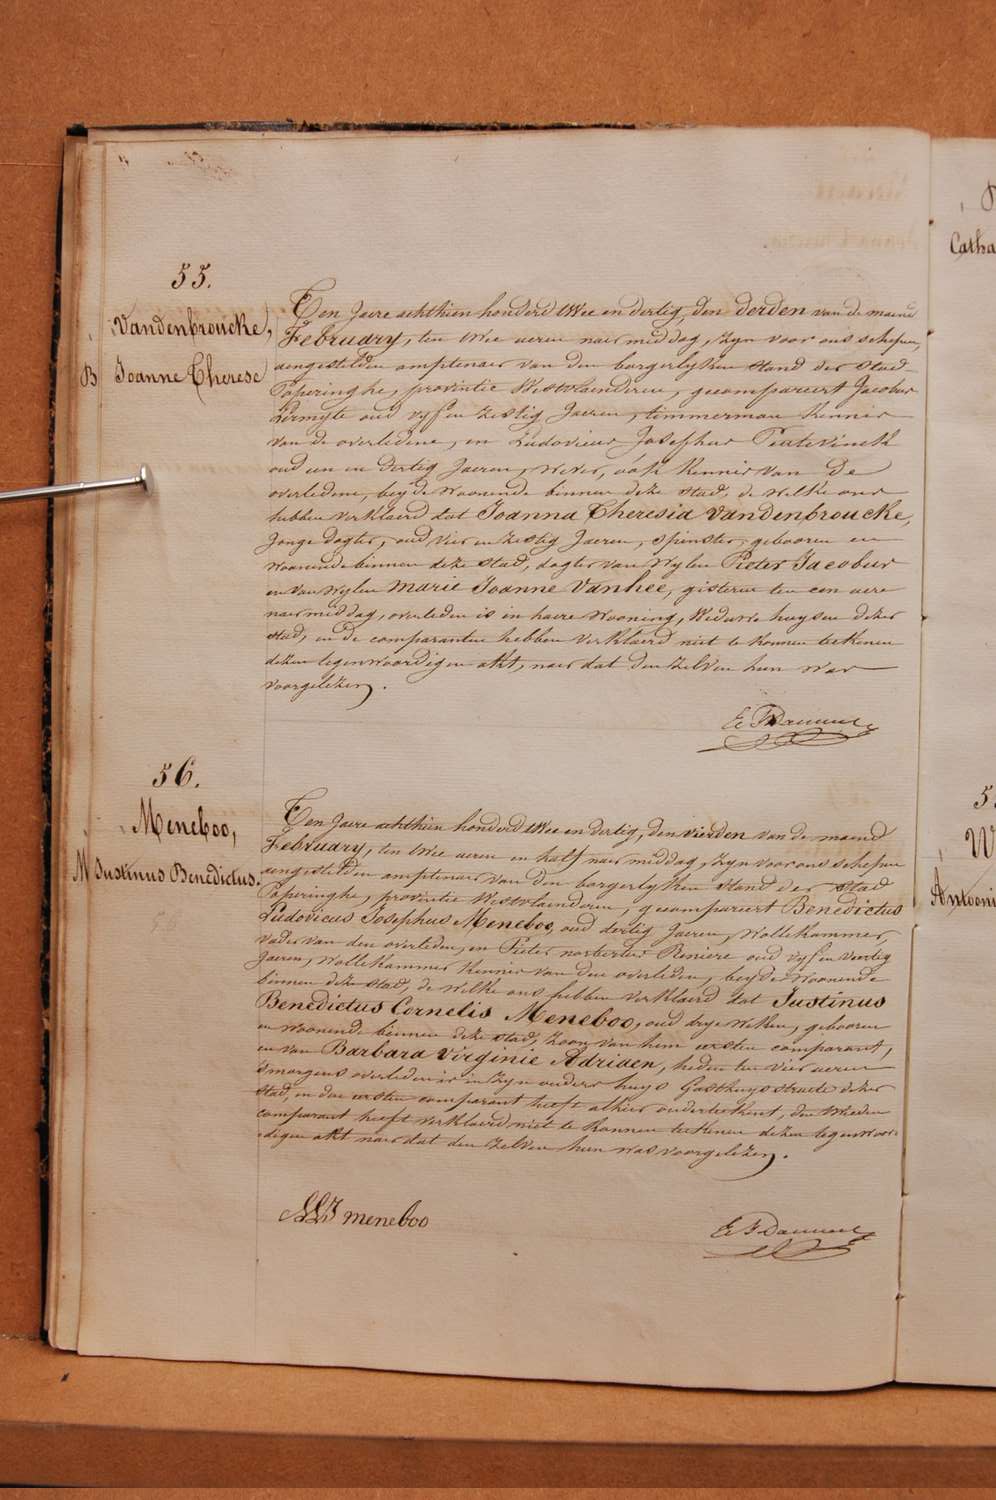 55.
Vandenbroucke,
B Joanne Therese
Ten Jaere achthien honderd twee en dertig, den derden van de maend
February, ten twee ueren naer middag, zyn voor ons schepen,
aengestelden amptenaer van den borgerlyken stand der stad
Poperinghe, provintie Westvlaenderen, gecompareert Jacobus
oud vyf en zestig Jaeren, timmerman kennis
van de overledene, en Ludovicus Josephus
oud een en dertig Jaeren, wever, oók kennis van de
overledene, beyde woonende binnen deze stad, de welke ons
hebben verklaerd dat Joanna Theresia Vandenbroucke,
Jonge dogter, oud vier en zestig Jaeren, spinster, gebooren en
woonende binnen deze stad, dogter van wylen Pieter Jacobus
en van wylen Marie Joanne Vanhee, gisteren ten een uere
naermiddag, overleden is in haere wooning, Weduwe huysen dezer
stad, en de comparanten hebben verklaerd niet te konnen teekenen
dezen tegenwoordigen akt, naer dat den zelven hun was
voorgelezen.
56.
Meneboo,
M Justinus Benedictus.
Ten Jaere achthien honderd twee en dertig, den vierden van de maend
February, ten twee ueren en half naer middag, zyn voor ons schepen
aengestelden amptenaer van den borgerlyken stand der stad
Poperinghe, provintie Westvlaenderen, gecompareert Benedictus
Ludovicus Josephus Meneboo, oud dertig Jaeren, wollekammer,
vader van den overleden, en Pieter norbertus oud vyf en veertig
Jaeren, wollekammer kennis van den overleden, beyde woonende
binnen deze stad, de welke ons hebben verklaerd dat Justinus
Benedictus Cornelis Meneboo, oud drye weken, gebooren
en woonende binnen deze stad, zoon van hem eersten comparant,
en van Barbara Virginie Adriaen, heden ten vier ueren
smorgens overleden is in zyn ouders huys Gasthuysstraete dezer
stad, en den eersten comparant heeft alhier onderteekent, den tweeden
comparant heeft verklaerd niet te konnen teekenen dezen tegenwoor-
digen akt naer dat den zelven hun was voorgelezen.
meneboo
Catha
W
Antooni